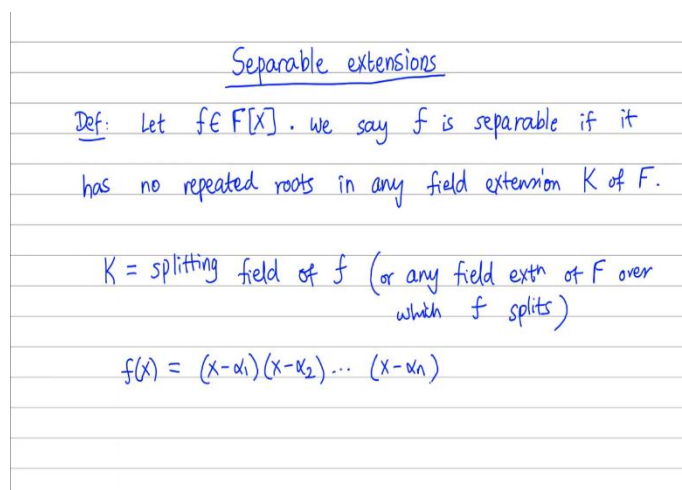 Separable extensions
Def: Let f ∈ F[X]. we say f is separable if it
has no repeated roots in any field extension K of F.
K = splitting field of f (or any field extn of F over
which f splits)
f(x) = (x-α₁)(x-α₂)... (x-αₙ)